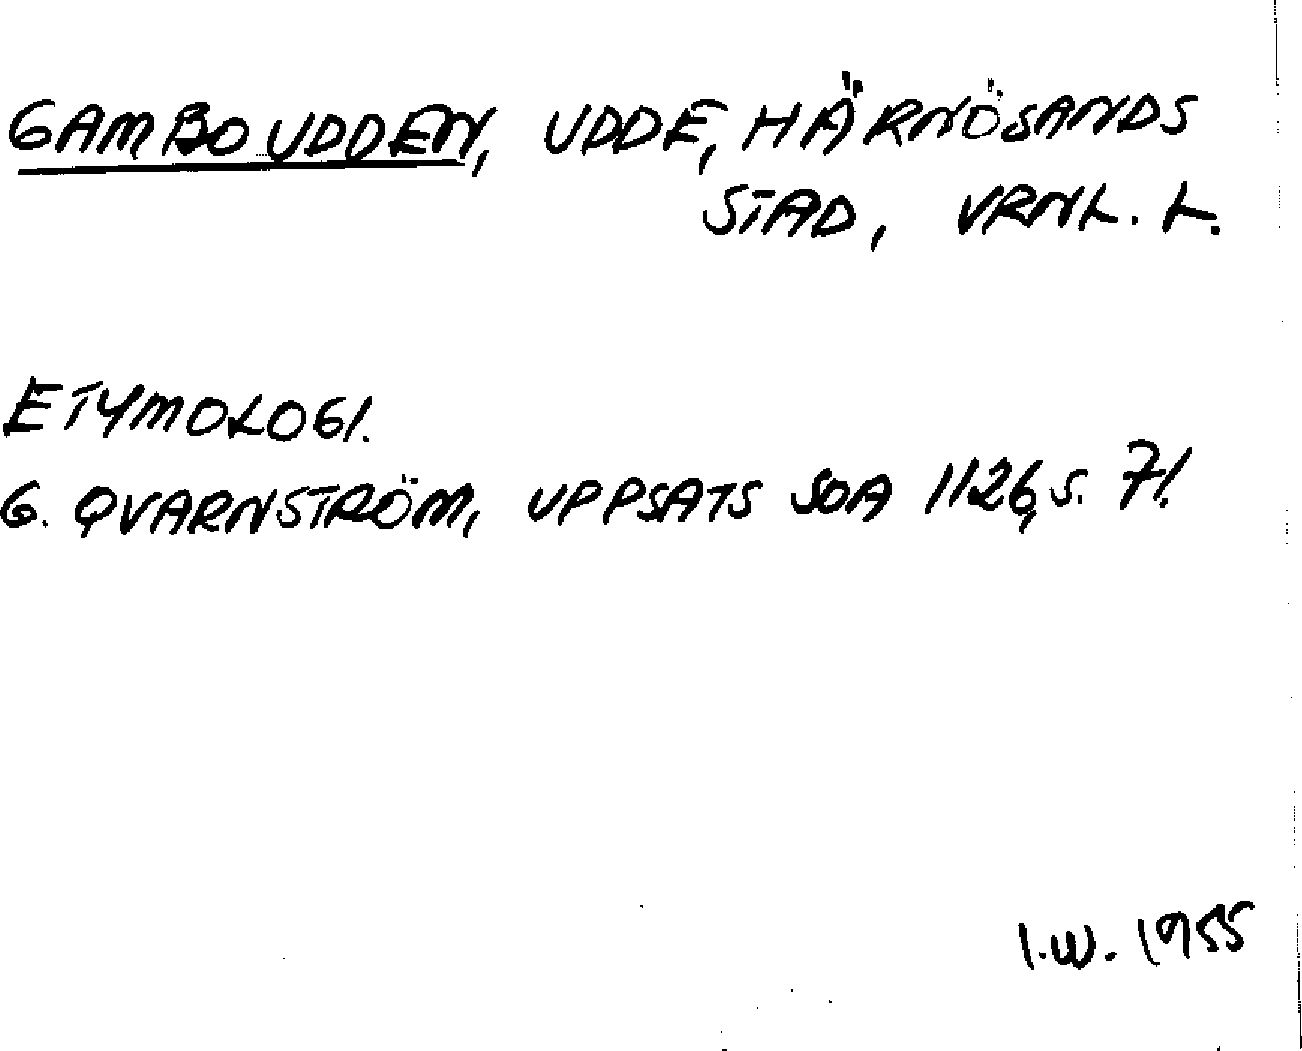 GAMBOUDDEN, UDDE, HÄRNÖSANDS
STAD, VRNL. L.
ETYMOLOGI.
G. QVARNSTRÖM, UPPSATS SOA 1126, S. 71.
I.W. 1955